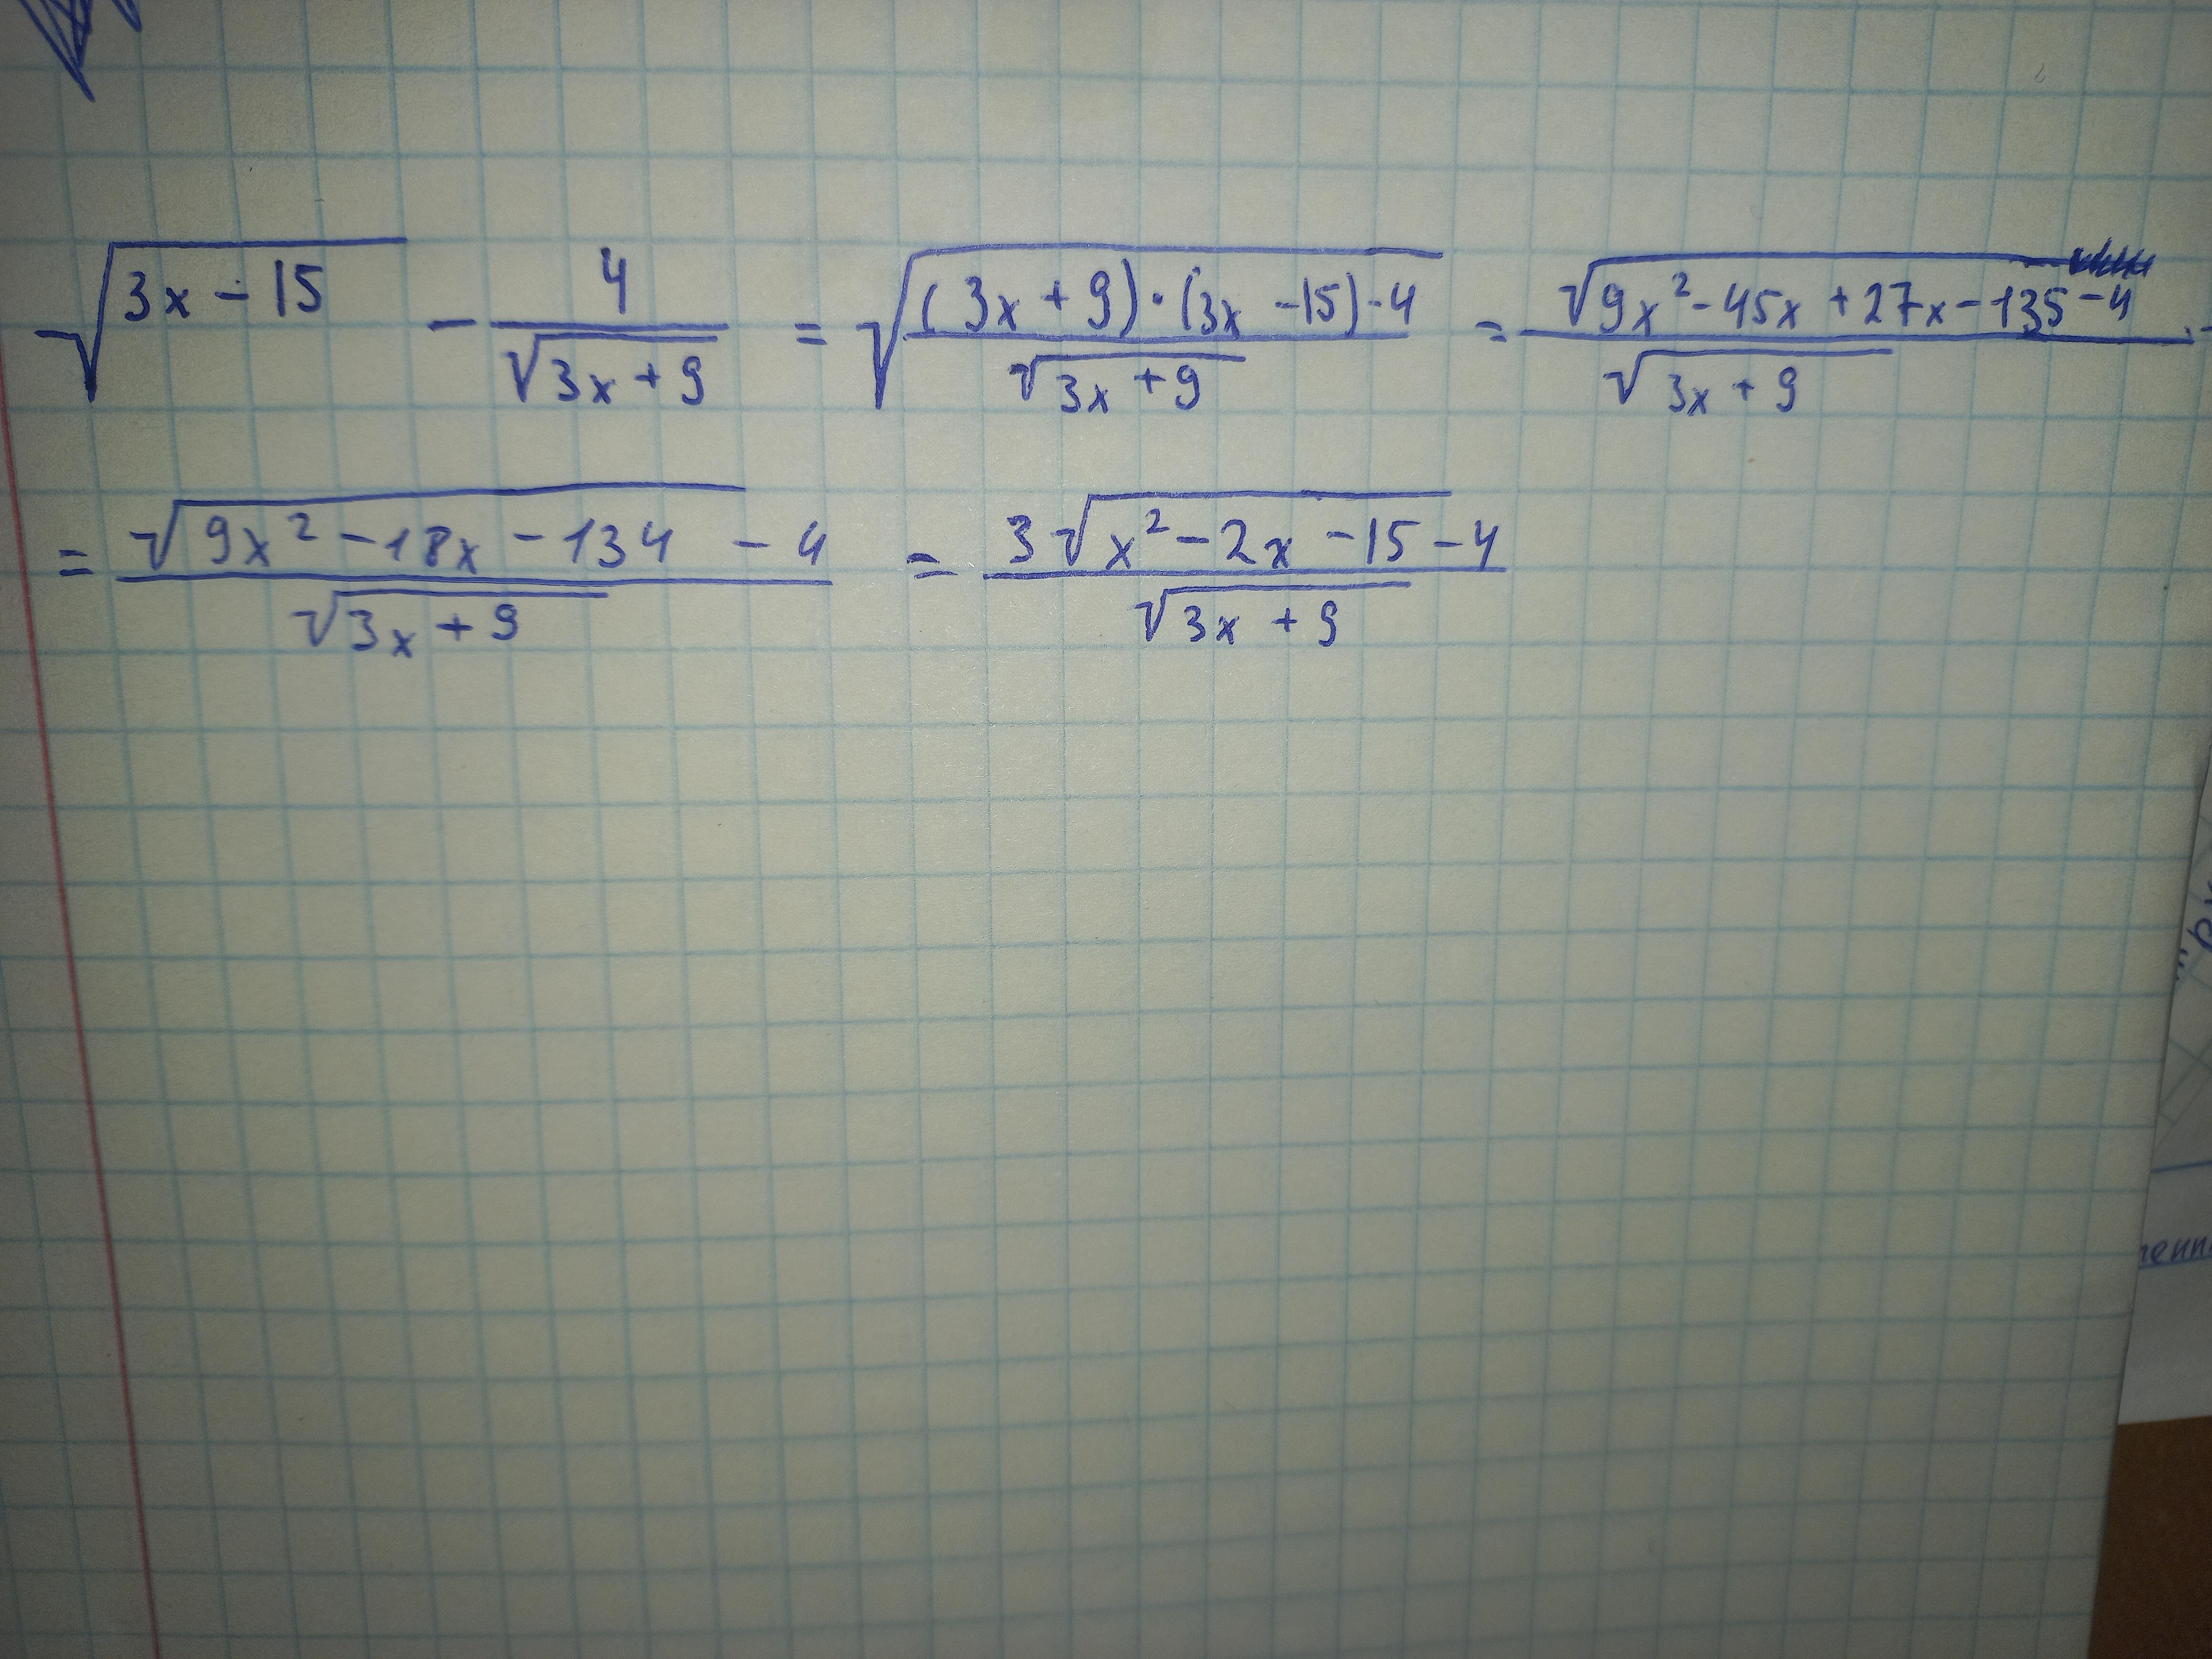 √(3x - 15) - 4/√(3x + 9) = √((3x + 9) · (3x - 15) - 4)/√(3x + 9) = √(9x² - 45x + 27x - 135 - 4)/√(3x + 9)
= (√(9x² - 18x - 134) - 4)/√(3x + 9) = (3√(x² - 2x - 15) - 4)/√(3x + 9)